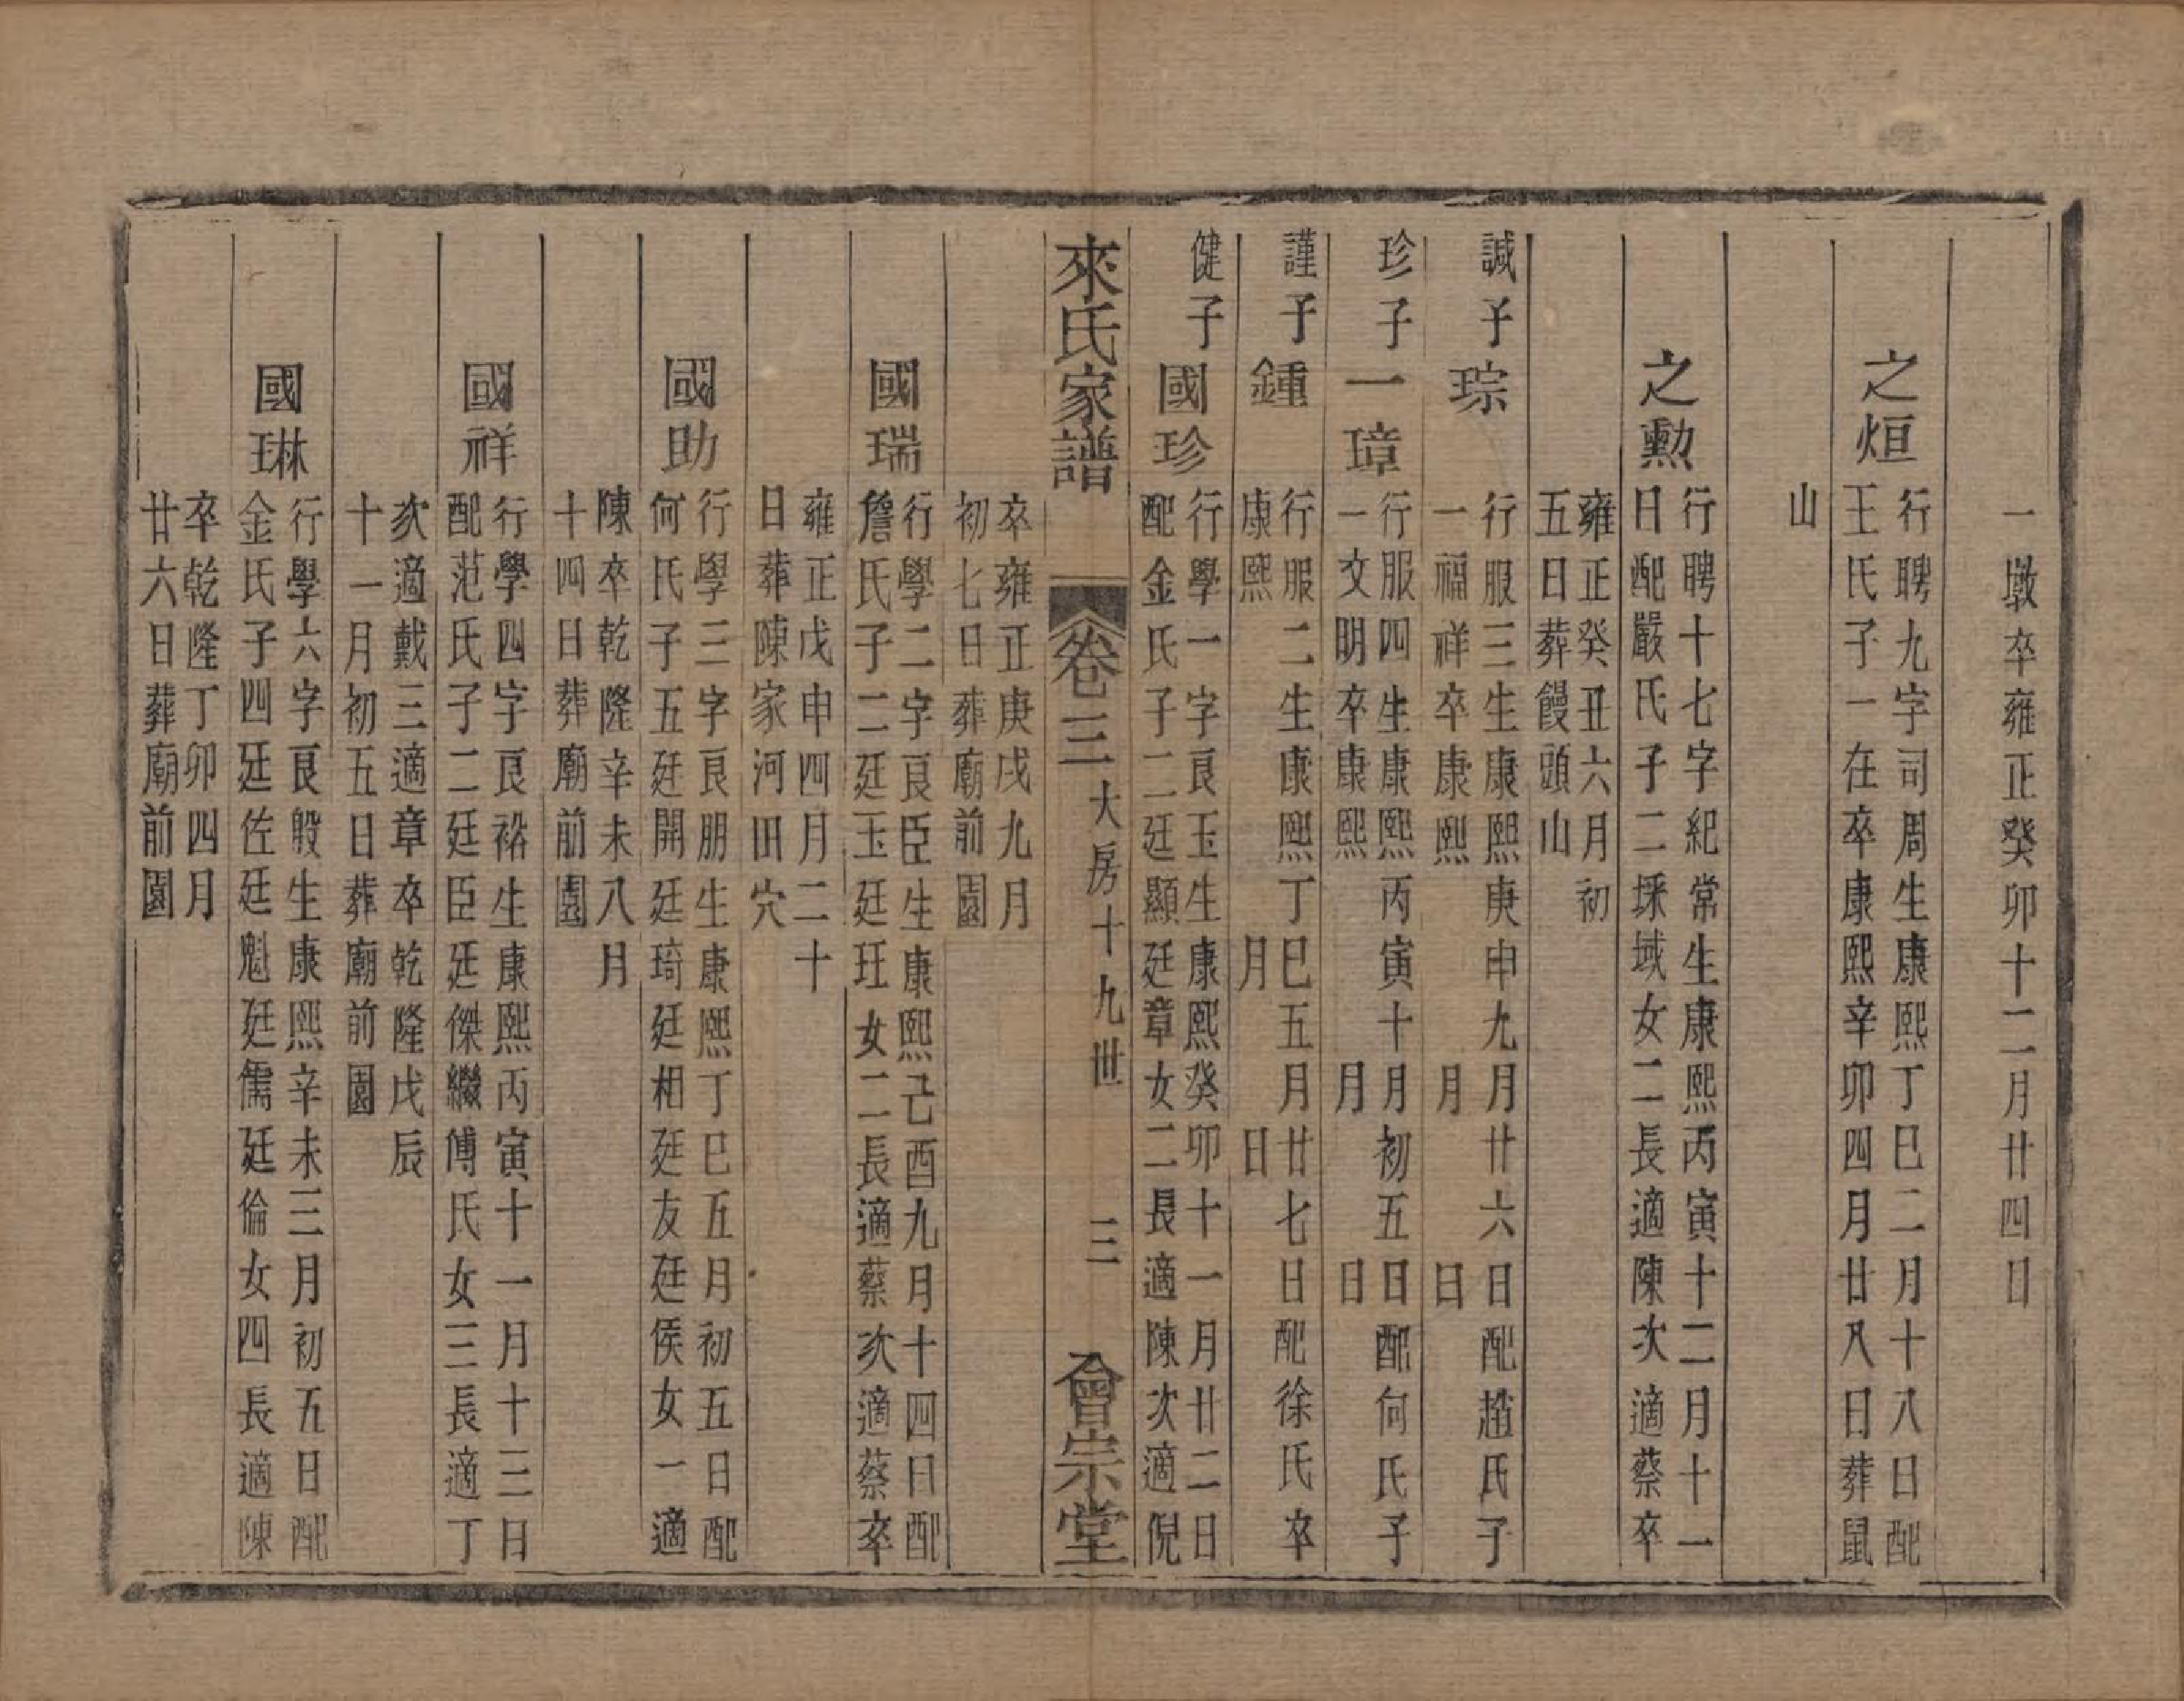 一墩卒雍正癸卯十二月廿四日
之烜
行聘九字司周生康熙丁巳二月十八日配
王氏子一在卒康熙辛卯四月廿八日葬鼠
山
之勲
行聘十七字紀常生康熙丙寅十二月十一
日配嚴氏子二埰域女二長適陳次適蔡卒
雍正癸丑六月初
五日葬饅頭山
誠子
琮
行服三生康熙庚申九月廿六日配趙氏子
一福祥卒康熙　月　日
珍子
一璋
行服四生康熙丙寅十月初五日配何氏子
一文明卒康熙　月　日
謹子
鍾
行服二生康熙丁巳五月廿七日配徐氏卒
康熙　月　日
健子
國珍
行學一字良玉生康熙癸卯十一月廿二日
配金氏子二廷顯廷章女二長適陳次適倪
來氏家譜　卷三　大房十九世　三　會宗堂
卒雍正庚戌九月
初七日葬廟前園
國瑞
行學二字良臣生康熙己酉九月十四日配
詹氏子二廷玉廷玨女二長適蔡次適蔡卒
雍正戊申四月二十
日葬陳家河田穴
國助
行學三字良朋生康熙丁巳五月初五日配
何氏子五廷開廷琦廷相廷友廷侯女一適
陳卒乾隆辛未八月
十四日葬廟前園
國祥
行學四字良裕生康熙丙寅十一月十三日
配范氏子二廷臣廷傑繼傅氏女三長適丁
次適戴三適章卒乾隆戊辰
十一月初五日葬廟前園
國琳
行學六字良般生康熙辛未三月初五日配
金氏子四廷佐廷魁廷儒廷倫女四長適陳
卒乾隆丁卯四月
廿六日葬廟前園